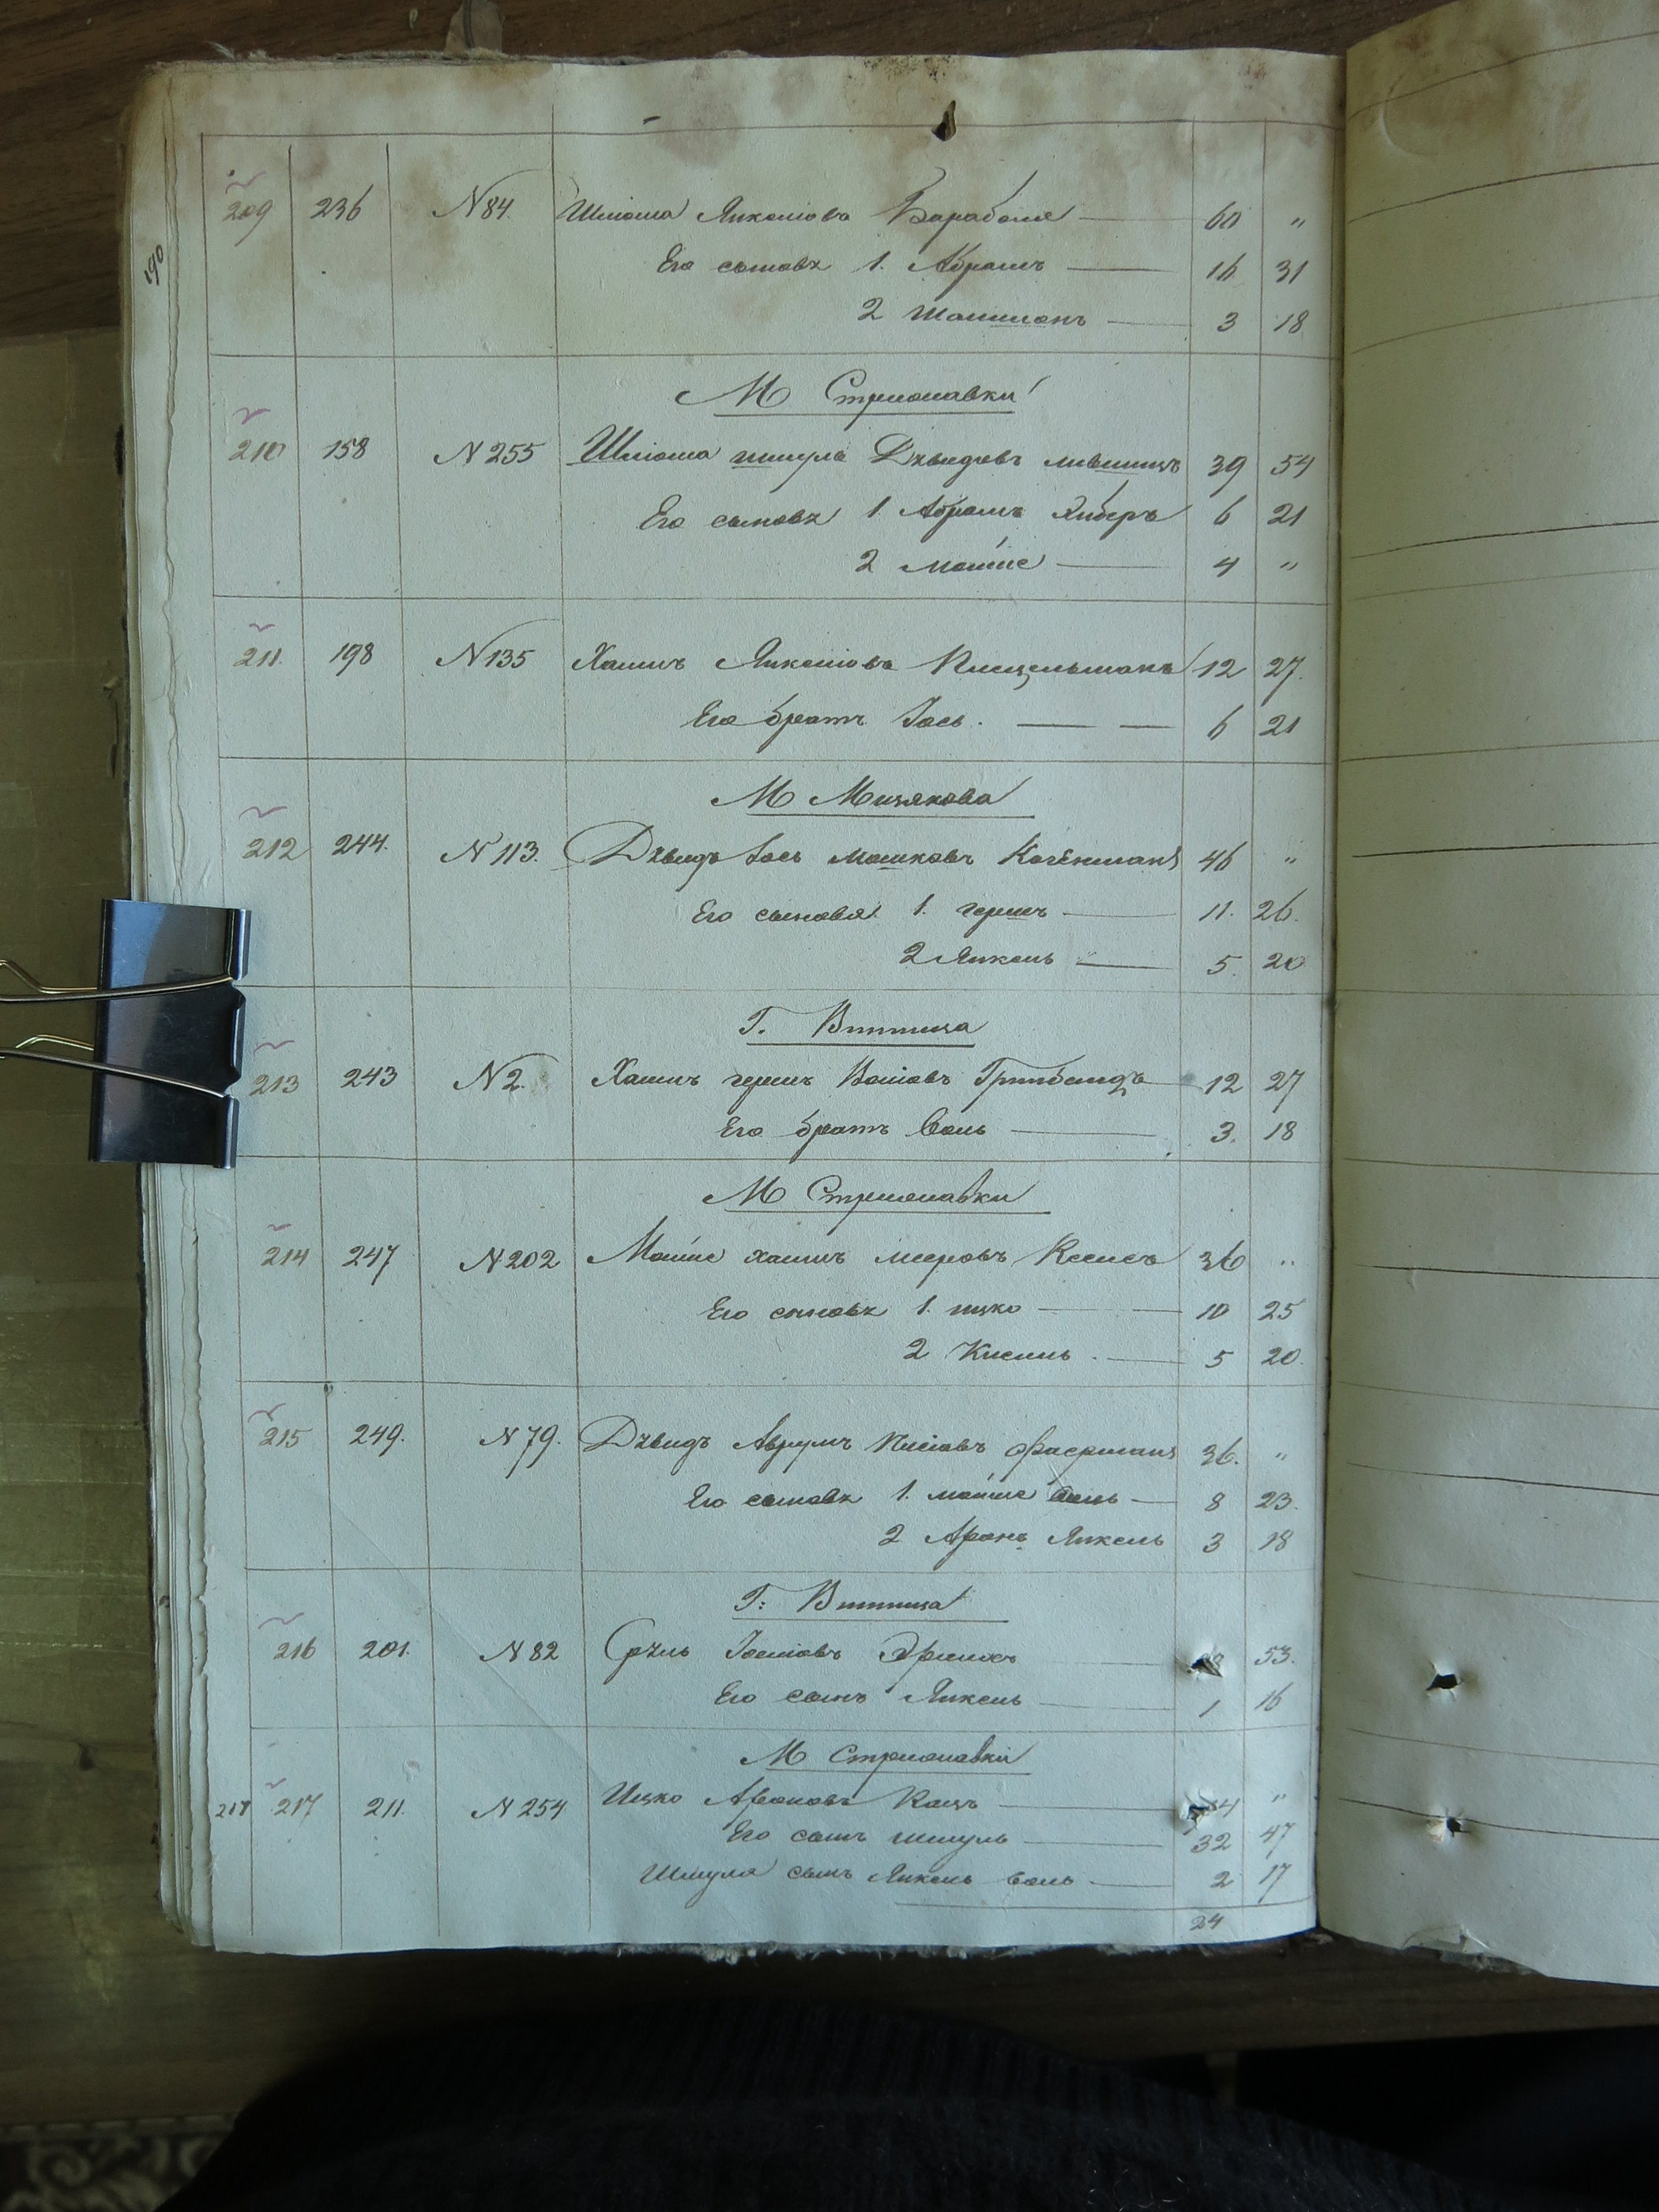 190
209 236 N 84. Шліома Янкеліовъ Барабоме 60 "
Его сыновя 1. Абрамъ 16 31
2 Шлиманъ 3 18
М Стрижавки
210 158 N 255 Шліома шмуль Двыдовъ лившицъ 39 54
Его сыновя 1 Абрамъ Хиберъ 6 21
2 Мотіе 4 "
211. 198 N 135 Хаимъ Янкеліовъ 12 27.
Его братъ Іось. 6 21
М Мизякова
212 244. N 113. Двыдъ Іось Мошковъ 46 "
Его сыновя. 1. гершъ 11. 26.
2 Янкель 5. 20
Г. Винница
213 243 N 2. Хаимъ гершъ Воліовъ 12 27
Его братъ Воль 3. 18
М Стрижавки
214 247 N 202 Мотіе хаимъ мееровъ 36 "
Его сыновя 1. ицко 10 25
2 Кисиль. 5 20.
215 249. N 79. Двыдъ Аврумъ Файерманъ 36. "
Его сыновя 1. мотіе 8 23.
2 Аронъ Янкель 3 18
Г: Винница
216 201. N 82 Сруль Іосіовъ 53.
Его сынъ Янкель 1 16
М Стрижавки
217 217 211. N 254 Ицко Ароновъ Кацъ "
Его сынъ шмуль 32 47
Шмуля сынъ Янкель Воль 2 17
24